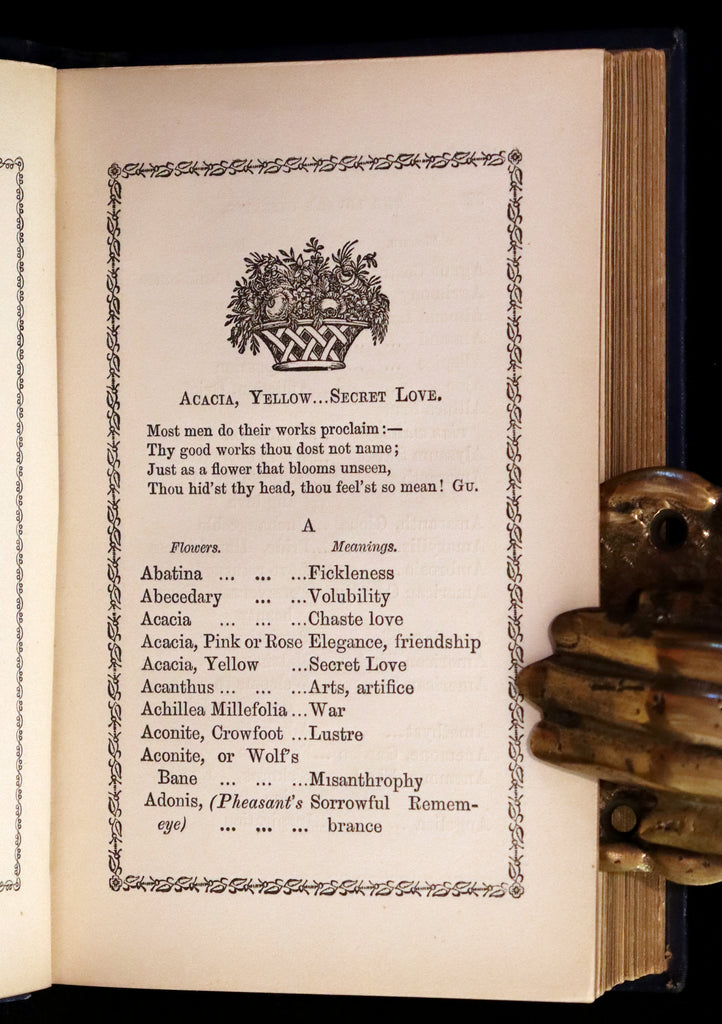 Acacia, Yellow...Secret Love.
Most men do their works proclaim:—
Thy good works thou dost not name;
Just as a flower that blooms unseen,
Thou hid'st thy head, thou feel'st so mean! Gu.
A
Flowers. Meanings.
Abatina ... ... ...Fickleness
Abecedary ... ...Volubility
Acacia ... ... ...Chaste love
Acacia, Pink or Rose Elegance, friendship
Acacia, Yellow ...Secret Love
Acanthus ... ... ...Arts, artifice
Achillea Millefolia ...War
Aconite, Crowfoot ...Lustre
Aconite, or Wolf's
Bane ... ... ...Misanthrophy
Adonis, (Pheasant's Sorrowful Remem-
eye) ... ... ... brance